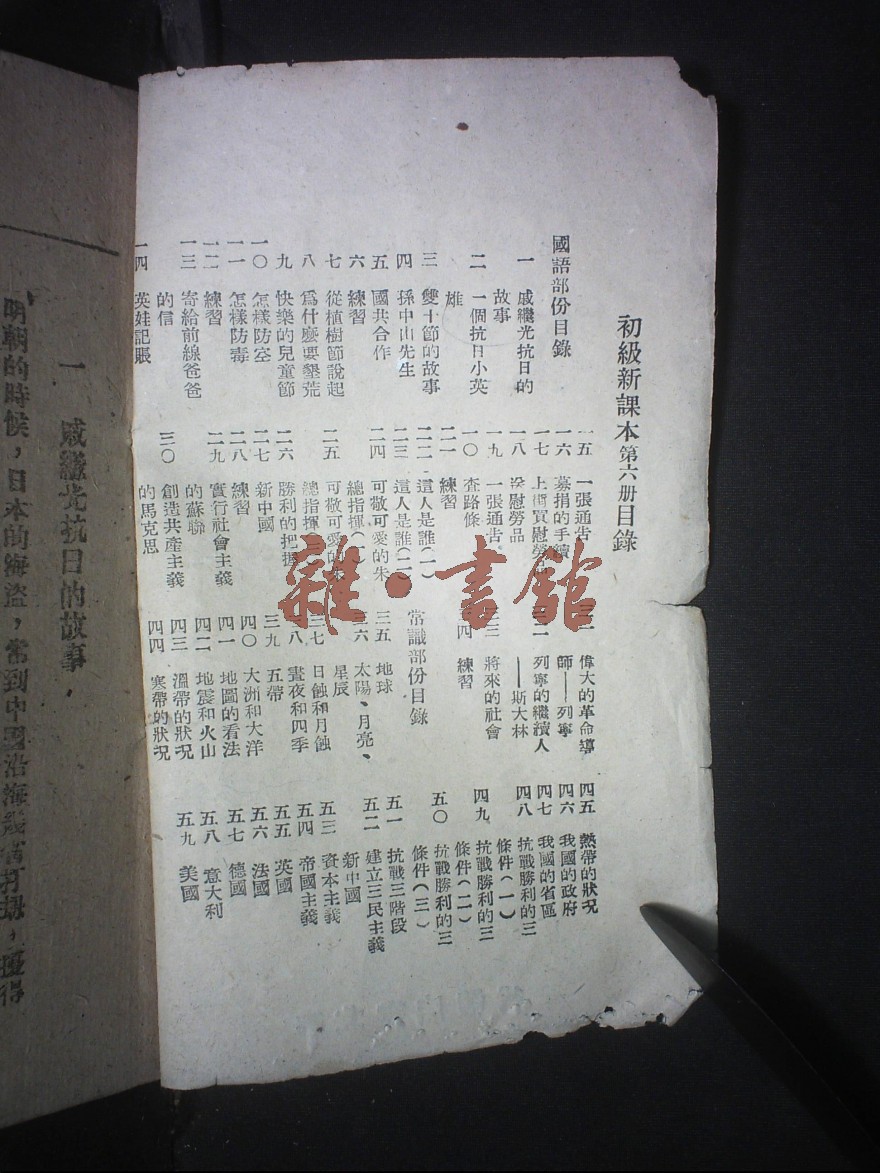 初級新課本第六册目錄
國語部份目錄
一　戚繼光抗日的
故事
二　一個抗日小英
雄
三　雙十節的故事
四　孫中山先生
五　國共合作
六　練習
七　從植樹節說起
八　爲什麼要墾荒
九　快樂的兒童節
一〇　怎樣防空
一一　怎樣防毒
一二　練習
一三　寄給前線爸爸
的信
一四　英娃記賬
一五　一張通告
一六　募捐的手續
一七　上街買慰勞
一八　送慰勞品
一九　一張通告
二〇　查路條
二一　練習
二二　這人是誰(一)
二三　這人是誰(二)
二四　可敬可愛的朱
總指揮(一)
二五　可敬可愛的朱
總指揮
二六　勝利的把握
二七　新中國
二八　練習
二九　實行社會主義
的蘇聯
三〇　創造共產主義
的馬克思
三一　偉大的革命導
師——列寧
三二　列寧的繼續人
——斯大林
三三　將來的社會
三四　練習
常識部份目錄
三五　地球
三六　太陽、月亮、
星辰
三七　日蝕和月蝕
三八　晝夜和四季
三九　五帶
四〇　大洲和大洋
四一　地圖的看法
四二　地震和火山
四三　溫帶的狀況
四四　寒帶的狀況
四五　熱帶的狀況
四六　我國的政府
四七　我國的省區
四八　抗戰勝利的三
條件(一)
四九　抗戰勝利的三
條件(二)
五〇　抗戰勝利的三
條件(三)
五一　抗戰三階段
五二　建立三民主義
新中國
五三　資本主義
五四　帝國主義
五五　英國
五六　法國
五七　德國
五八　意大利
五九　美國
一　戚繼光抗日的故事
明朝的時候，日本的海盜，常到中國沿海幾省打刼，擾得
雜·書館